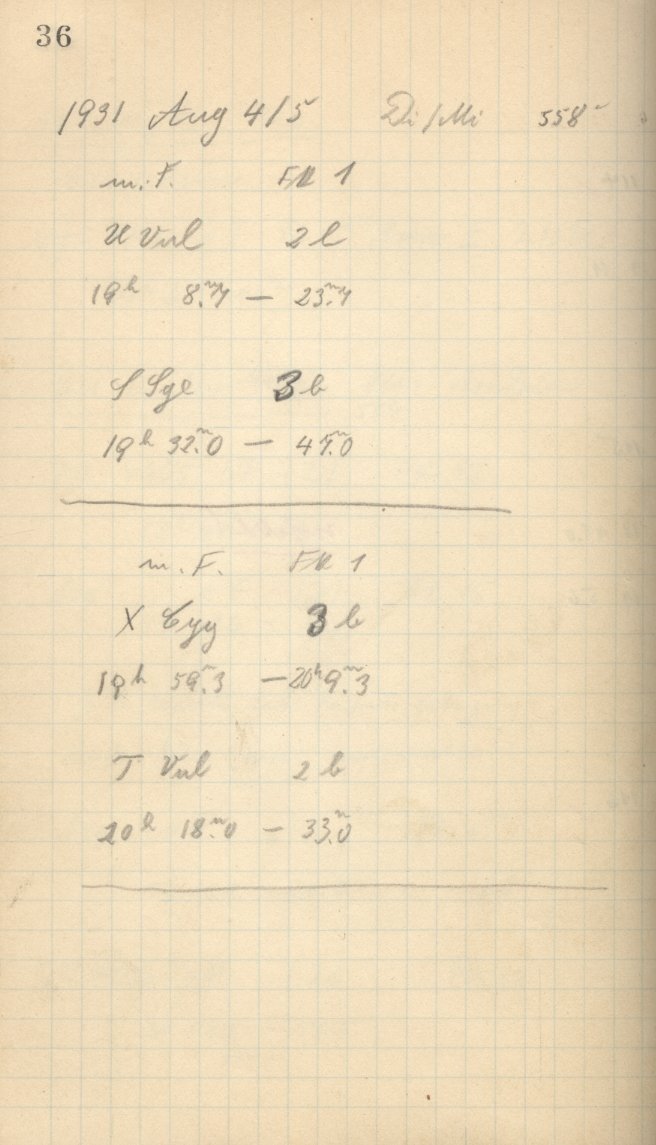 36
1931 Aug 4/5 Di/Mi 558
m. F. FK 1
U Vul 2 b
19h 8.m7 — 23.m7
S Sge 3 b
19h 32.m0 — 47.m0
m. F. FK 1
X Cyg 3 b
19h 59.m3 — 20h 9.m3
T Vul 2 b
20h 18.m0 — 33.m0